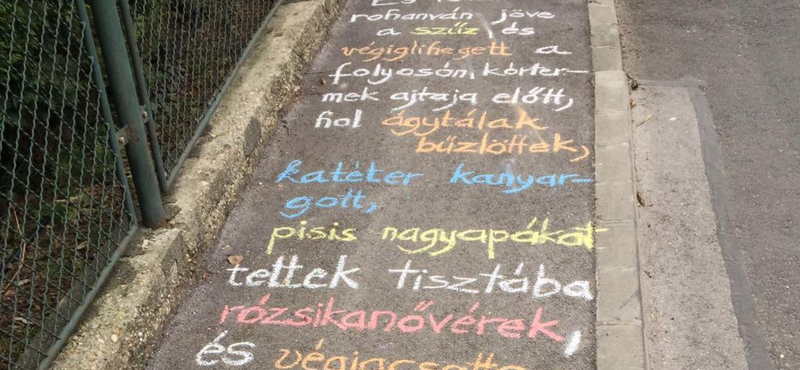 rohanván jöve
a szűz, és
végiglihegett a
folyosón, kórter-
mek ajtaja előtt,
hol ágytálak
bűzlöttek,
katéter kanyar-
gott,
pisis nagyapákat
tettek tisztába
rózsikanővérek,
és